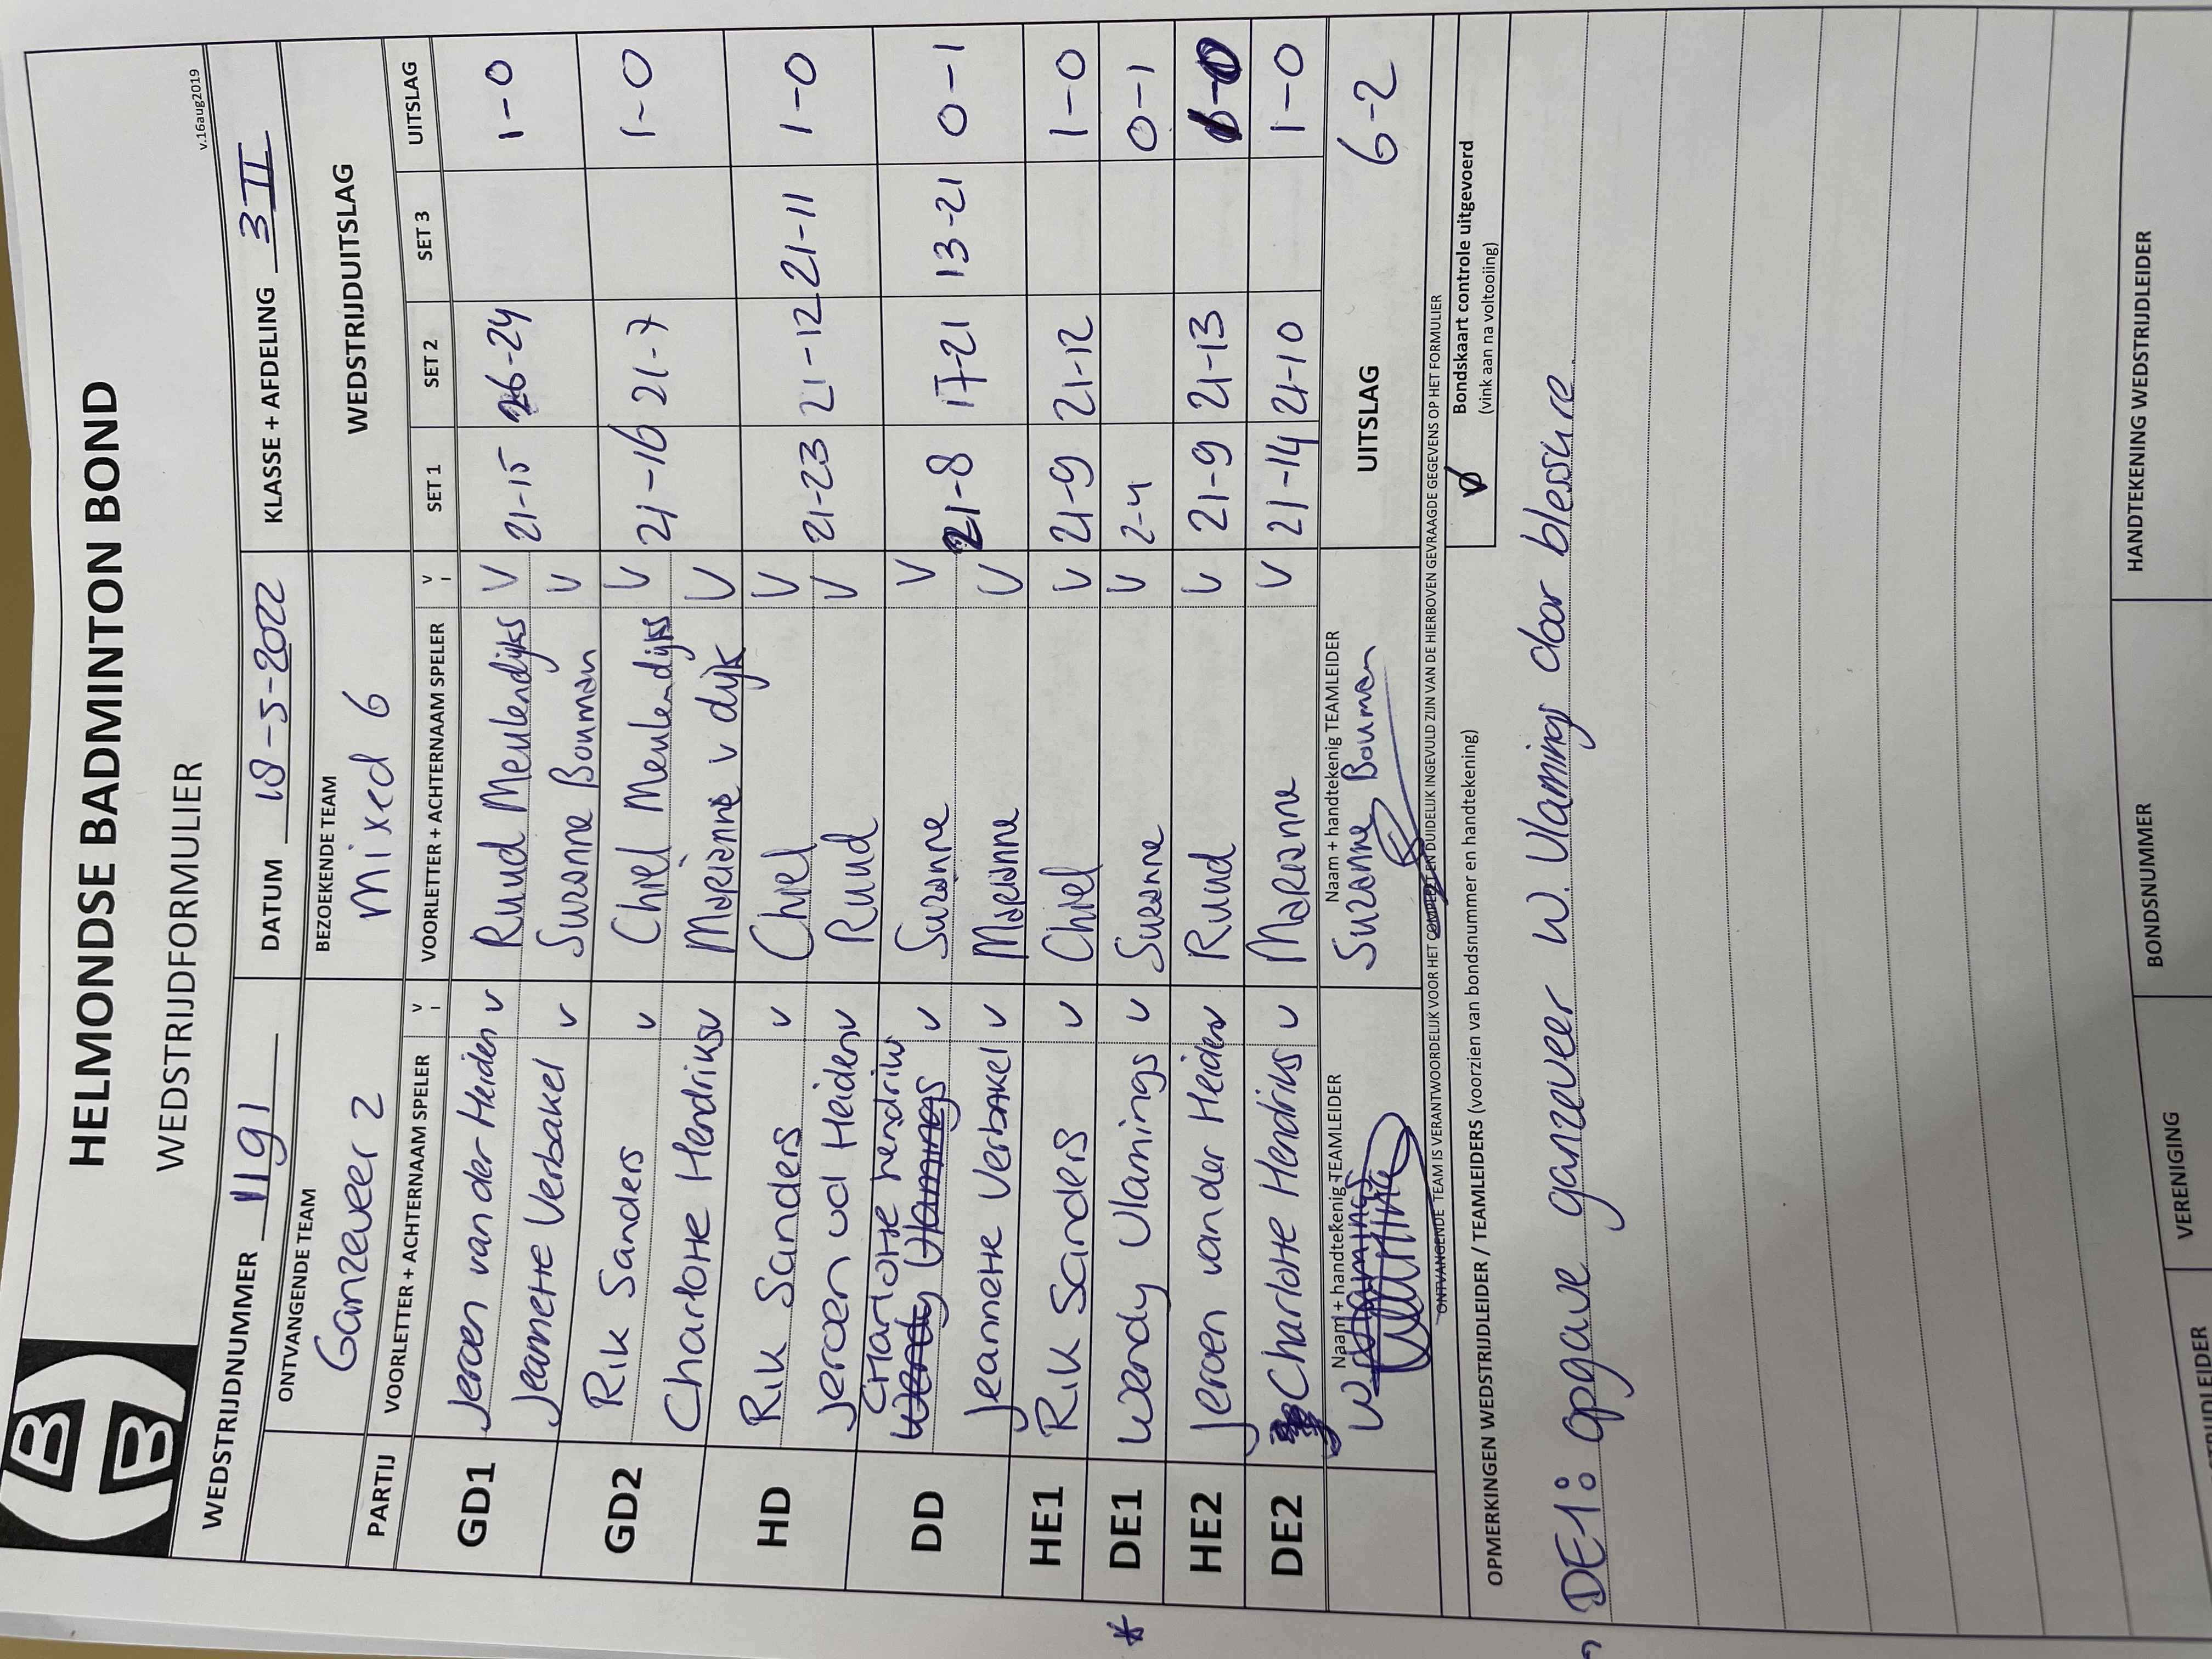 HELMONDSE BADMINTON BOND
WEDSTRIJDFORMULIER
v.16aug2019
WEDSTRIJDNUMMER 1191 DATUM 18-5-2022 KLASSE + AFDELING 3 II
ONTVANGENDE TEAM BEZOEKENDE TEAM WEDSTRIJDUITSLAG
Ganzeveer 2 mixed 6
PARTIJ VOORLETTER + ACHTERNAAM SPELER V I VOORLETTER + ACHTERNAAM SPELER V I SET 1 SET 2 SET 3 UITSLAG
GD1 Jeroen van der Heiden v Ruud Meulendijks V 21-15 26-24 1-0
Jeannette Verbakel v Suzanne Bouman V
GD2 Rik Sanders v Chiel Meulendijks V 21-16 21-7 1-0
Charlotte Hendriks v Marianne v dijk V
HD Rik Sanders v Chiel V 21-23 21-12 21-11 1-0
Jeroen vd Heiden v Ruud V
DD Charlotte hendriks
Wendy Vlamings v Suzanne V 21-8 17-21 13-21 0-1
Jeannette Verbakel v Marianne V
HE1 Rik Sanders v Chiel V 21-9 21-12 1-0
* DE1 Wendy Vlamings v Suzanne V 2-4 0-1
HE2 Jeroen van der Heiden v Ruud V 21-9 21-13 1-0
DE2 Charlotte Hendriks v Marianne V 21-14 21-10 1-0
Naam + handtekenig TEAMLEIDER Naam + handtekenig TEAMLEIDER UITSLAG 6-2
W Vlamings Suzanne Bouman
ONTVANGENDE TEAM IS VERANTWOORDELIJK VOOR HET COMPLEET EN DUIDELIJK INGEVULD ZIJN VAN DE HIERBOVEN GEVRAAGDE GEGEVENS OP HET FORMULIER
OPMERKINGEN WEDSTRIJDLEIDER / TEAMLEIDERS (voorzien van bondsnummer en handtekening) V Bondskaart controle uitgevoerd
(vink aan na voltooiing)
DE1: opgave ganzeveer W. Vlamings door blessure.
VERENIGING BONDSNUMMER HANDTEKENING WEDSTRIJDLEIDER